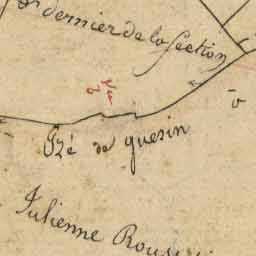 dernier de la Section
Izé de guesin
Julienne Rous